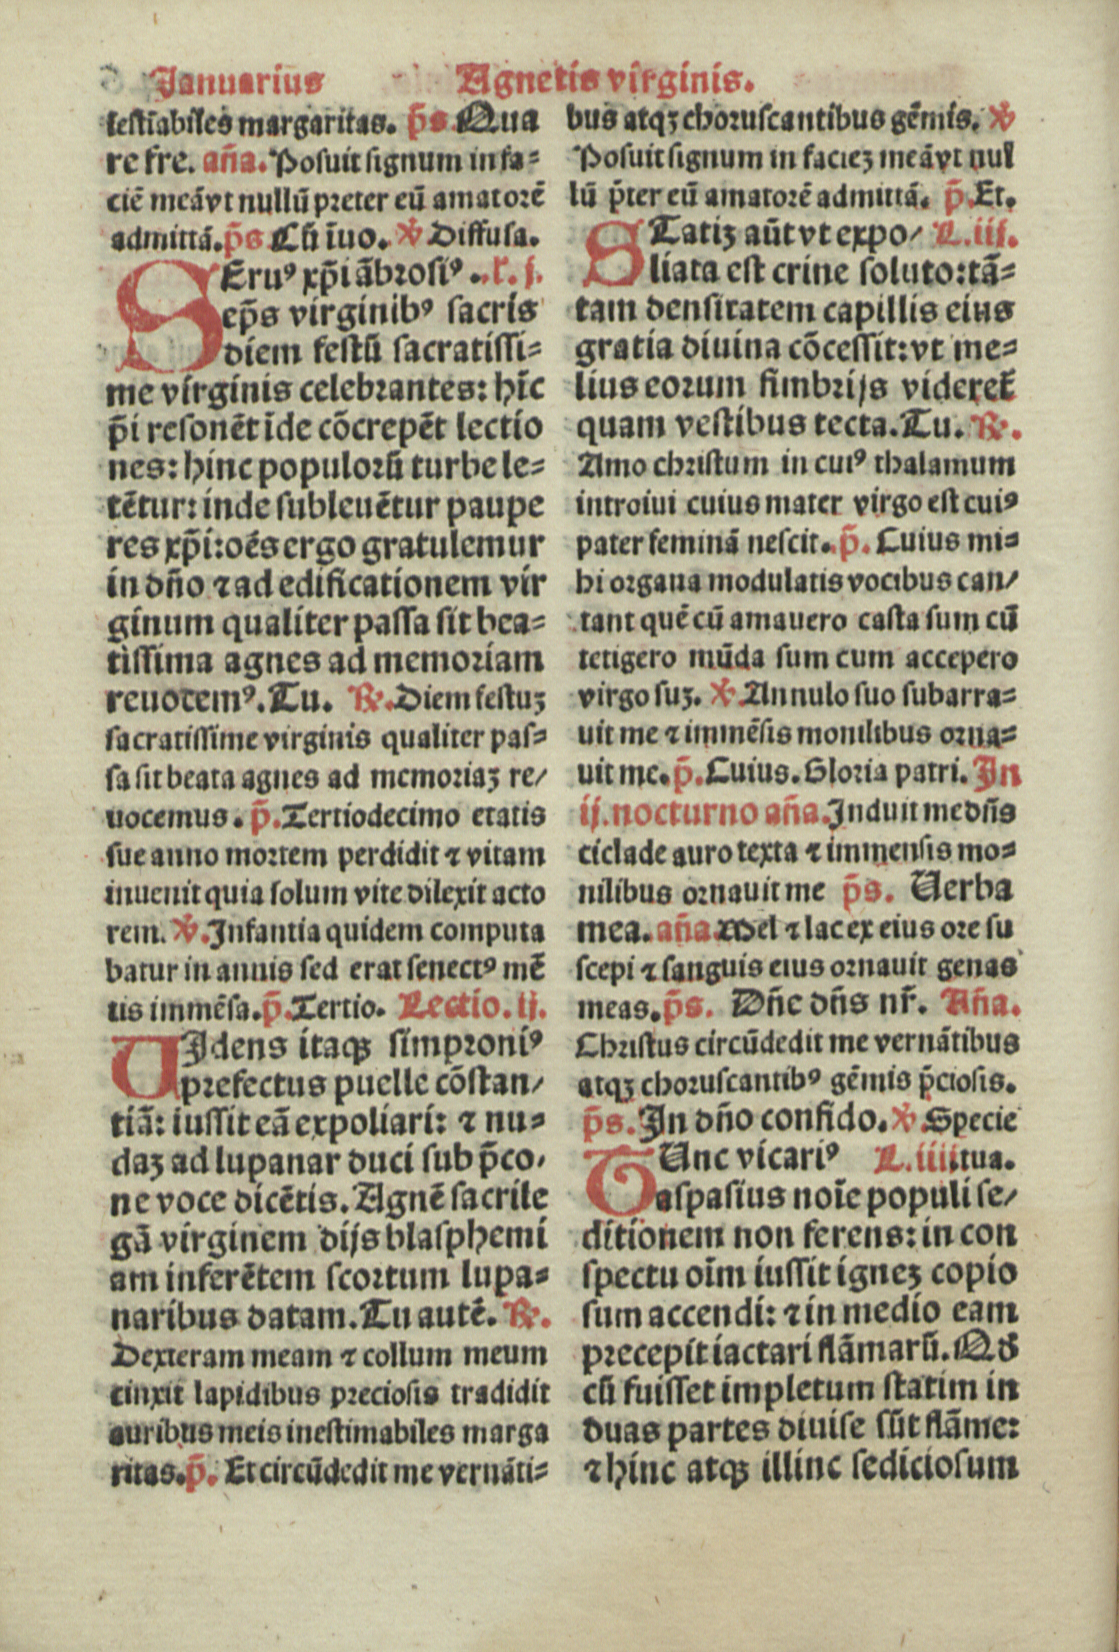 Januarius Agnetis virginis.
testīabiles margaritas. p̄s. Qua
re fre. an̄a. Posuit signum in fa⸗
ciē meā vt nullū preter eū amatorē
admittā. p̄s Cū īuo. ℣ Diffusa.
SEruꝰ xp̄i ābrosiꝰ. L. j.
ep̄s virginibꝰ sacris
diem festū sacratissi⸗
me virginis celebrantes: hīc
p̄i resonēt īde cōcrepēt lectio
nes: hinc populorū turbe le⸗
tētur: inde subleuētur paupe
res xp̄i: oēs ergo gratulemur
in dn̄o ⁊ ad edificationem vir
ginum qualiter passa sit bea⸗
tissima agnes ad memoriam
reuocemꝰ. Tu. ℟. Diem festuꝫ
sacratissime virginis qualiter pas⸗
sa sit beata agnes ad memoriaꝫ re/
uocemus. p̄. Tertiodecimo etatis
sue anno mortem perdidit ⁊ vitam
inuenit quia solum vite dilexit acto
rem. ℣. Infantia quidem computa
batur in annis sed erat senectꝰ mē
tis immēsa. p̄. Tertio. Lectio. ij.
UIdens itaqꝫ simproniꝰ
prefectus puelle cōstan/
tiā: iussit eā expoliari: ⁊ nu⸗
daꝫ ad lupanar duci sub p̄co/
ne voce dicētis. Agnē sacrile
gā virginem dijs blasphemi
am inferētem scortum lupa⸗
naribus datam. Tu autē. ℟.
Dexteram meam ⁊ collum meum
cinxit lapidibus preciosis tradidit
auribus meis inestimabiles marga
ritas. p̄. Et circūdedit me vernāti⸗
bus atqꝫ choruscantibus gēmis. ℣
Posuit signum in facieꝫ meā vt nul
lū p̄ter eū amatorē admittā. p̄. Et.
STatiꝫ aūt vt expo/ L. iij.
liata est crine soluto: tā⸗
tam densitatem capillis eius
gratia diuina cōcessit: vt me⸗
lius eorum fimbrijs videret̄
quam vestibus tecta. Tu. ℟.
Amo christum in cuiꝰ thalamum
introiui cuius mater virgo est cuiꝰ
pater feminā nescit. p̄. Cuius mi⸗
hi organa modulatis vocibus can/
tant quē cū amauero casta sum cū
tetigero mūda sum cum accepero
virgo suꝫ. ℣. Annulo suo subarra⸗
uit me ⁊ immēsis monilibus orna⸗
uit me. p̄. Cuius. Gloria patri. In
ij. nocturno an̄a. Induit me dn̄s
ciclade auro texta ⁊ immensis mo⸗
nilibus ornauit me p̄s. Uerba
mea. an̄a. Mel ⁊ lac ex eius ore su
scepi ⁊ sanguis eius ornauit genas
meas. p̄s. Dn̄e dn̄s nr̄. An̄a.
Christus circūdedit me vernātibus
atqꝫ choruscantibꝰ gēmis p̄ciosis.
p̄s. In dn̄o confido. ℣. Specie
TUnc vicariꝰ L. iiij. tua.
aspasius noīe populi se/
ditionem non ferens: in con
spectu oīm iussit igneꝫ copio
sum accendi: ⁊ in medio eam
precepit iactari flāmarū. Qd̄
cū fuisset impletum statim in
duas partes diuise sūt flāme:
⁊ hinc atqꝫ illinc sediciosum